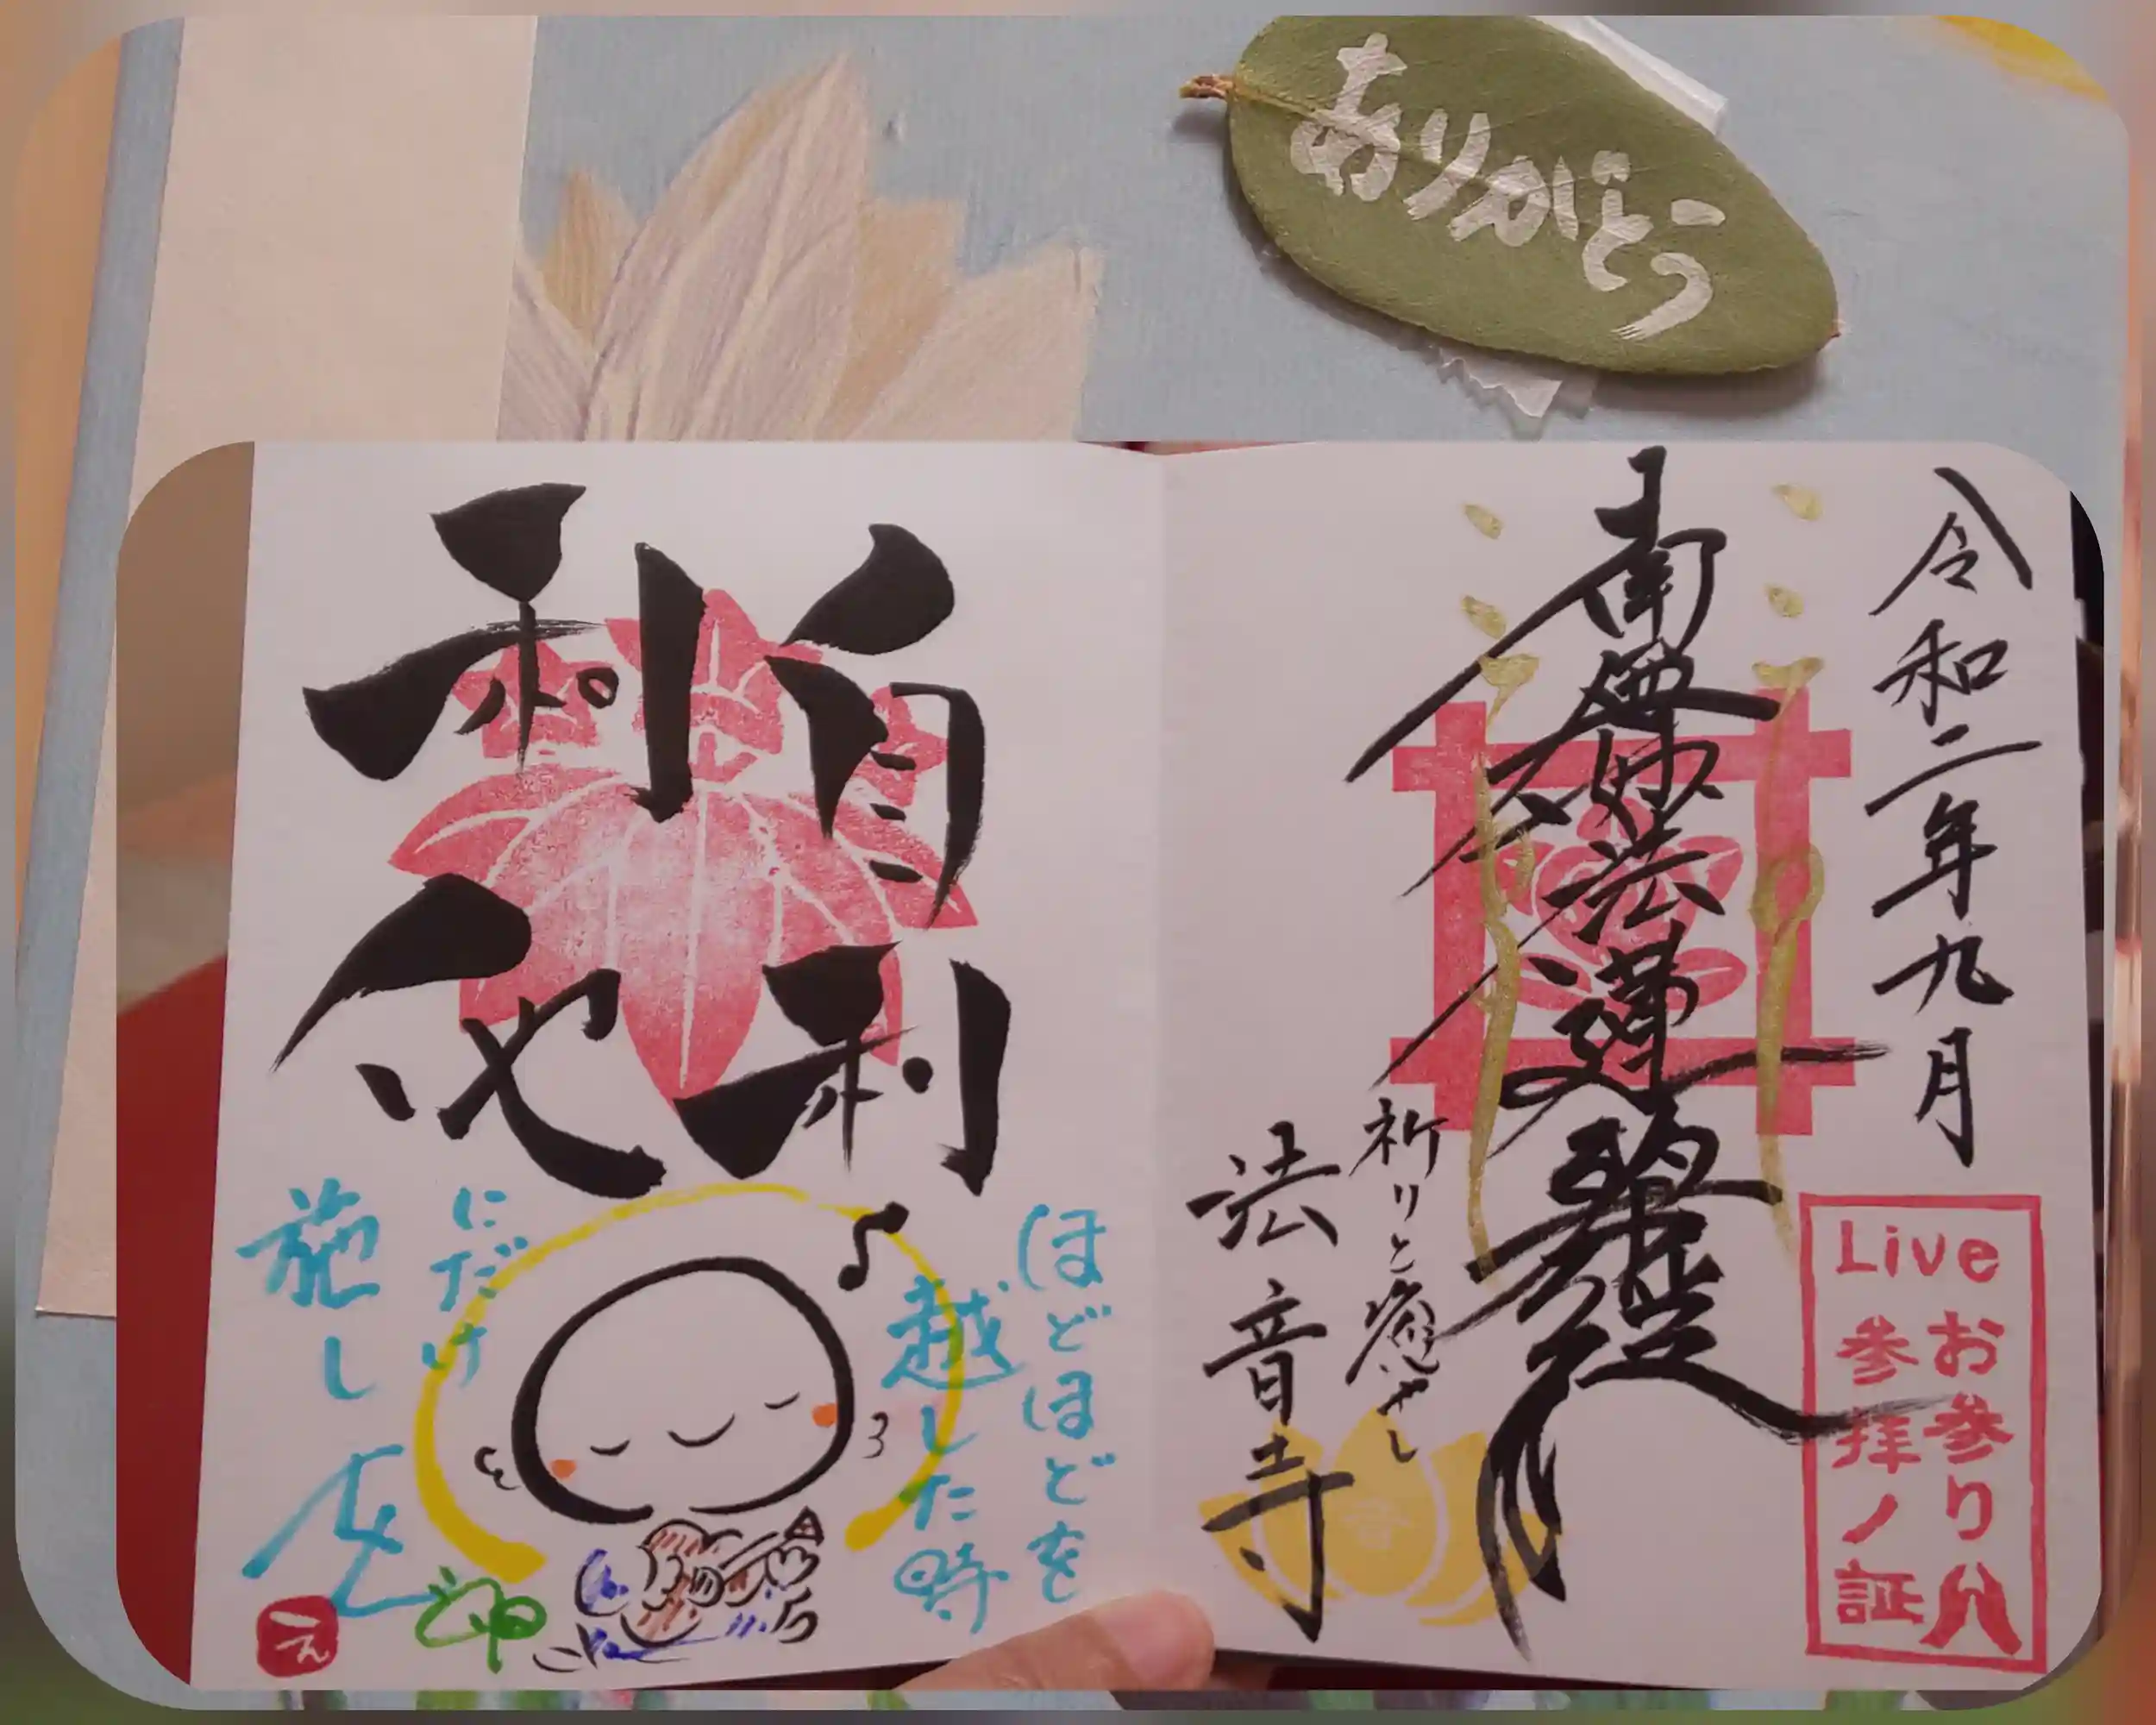 ありがとう
令和二年九月
南無妙法蓮華経
祈りと癒やし
法音寺
Live
お参り
参拝ノ証
自利
利他
ほどほどを
越した時
にだけ
施し
えん